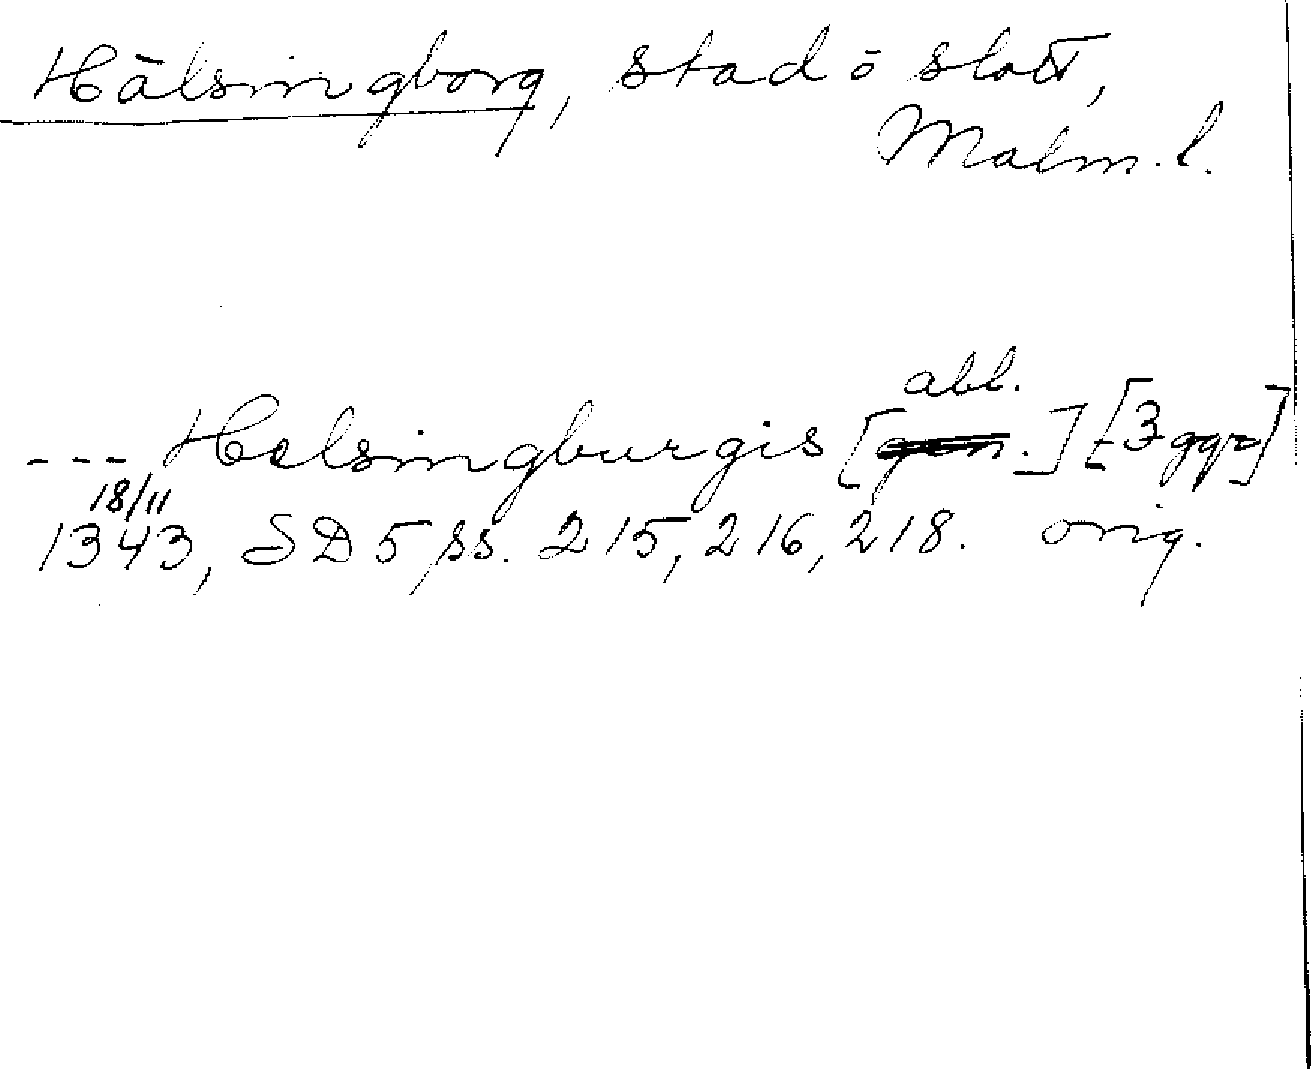 Hälsingborg, stad ō slott,
Malm. l.
abl.
--- Helsingburgis [gen.] [3 ggr]
18/11
1343, SD 5 ss. 215, 216, 218. orig.